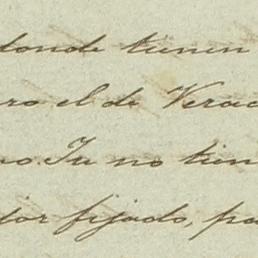 donde tienen
ro el de Verac
no. Tu no tien
dor fijado, pa